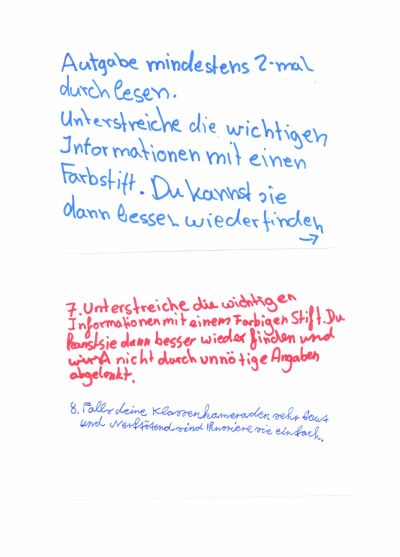 Aufgabe mindestens 2-mal
durchlesen.
Unterstreiche die wichtigen
Informationen mit einen
Farbstift. Du kannst sie
dann besser wiederfinden
→
7. Unterstreiche die wichtigen
Informationen mit einem Farbigen Stift. Du
kannst sie dann besser wieder finden und
nicht durch unnötige Angaben
abgelenkt.
8. Falls deine Klassenkameraden sehr laut
und Nerftötend sind Ihnoriere sie einfach.